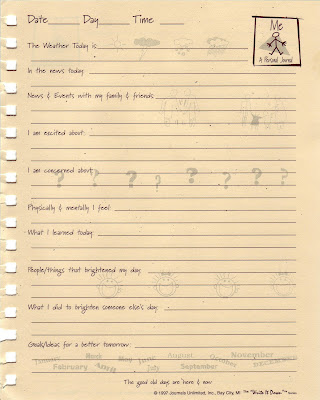 Date Day Time
Me
A Personal Journal
The Weather Today is
In the news today
News & Events with my family & friends
I am excited about:
I am concerned about:
? ? ? ? ? ? ? ?
Physically & mentally I feel:
What I learned today:
People/things that brightened my day:
What I did to brighten someone else's day:
Goals/Ideas for a better tomorrow:
January March May June August October November
February April July September December
The good old days are here & now
© 1997 Journals Unlimited, Inc., Bay City, MI The "Write It Down"